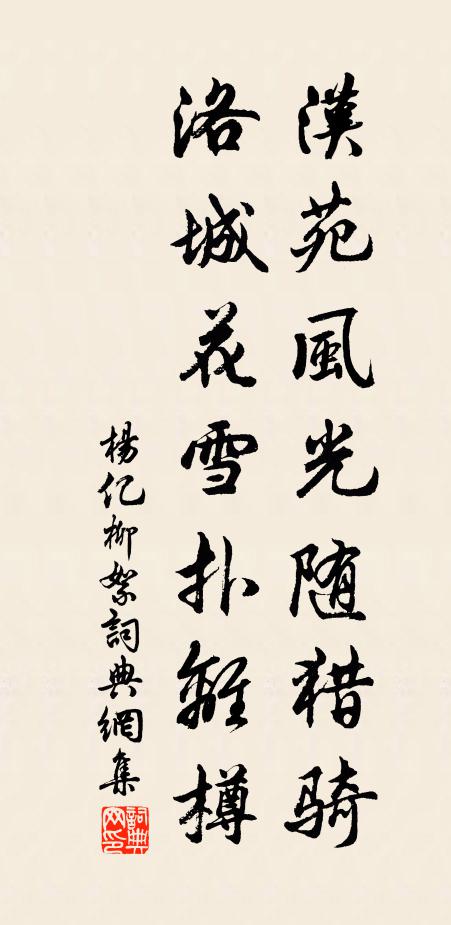 漢苑風光随猎骑
洛城花雪扑離樽
楊亿柳絮詞典網集
詞典网印